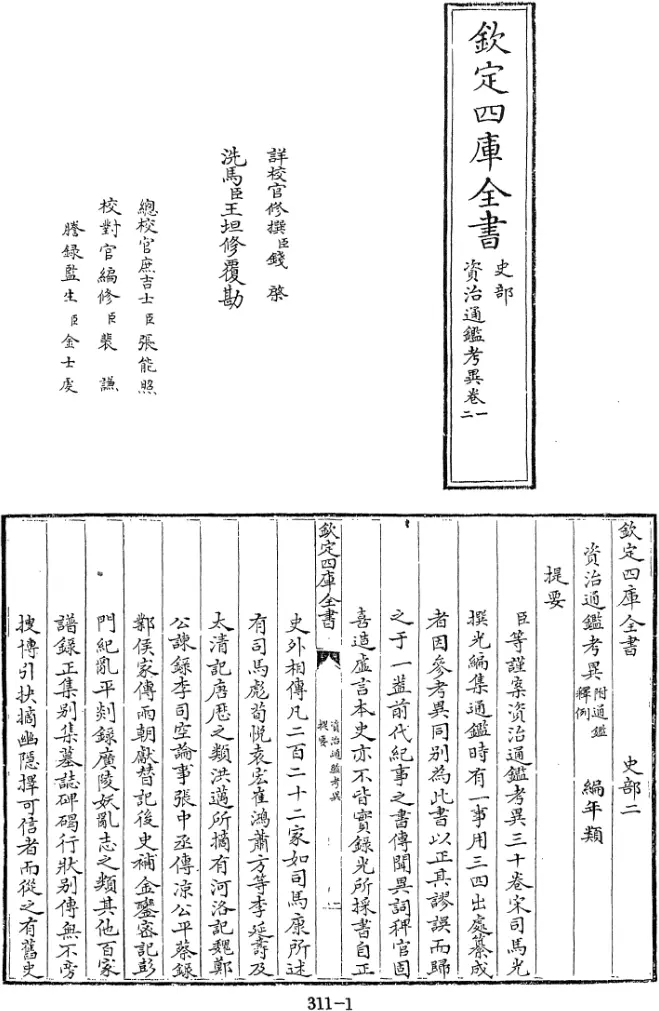 欽定四庫全書
史部
資治通鑑考異卷一
二
詳校官修撰臣錢棨
洗馬臣王坦修覆勘
總校官庶吉士臣張能照
校對官編修臣裴謙
謄錄監生臣金士虔
欽定四庫全書 史部二
資治通鑑考異附通鑑釋例 編年類
提要
臣等謹案資治通鑑考異三十卷宋司馬光
撰光編集通鑑時有一事用三四出處纂成
者因參考異同别為此書以正其謬誤而歸
之于一葢前代紀事之書傳聞異詞稗官固
喜造虛言本史亦不皆實録光所採書自正
欽定四庫全書
資治通鑑考異
提要
一
史外相傳凡二百二十二家如司馬康所述
有司馬彪荀悅袁宏崔鴻蕭方等李延壽及
太清記唐歷之類洪邁所摘有河洛記魏鄭
公諫錄李司空論事張中丞傳凉公平蔡録
鄴侯家傳兩朝獻替記後史補金鑾宻記彭
門紀亂平剡錄廣陵妖亂志之類其他百家
譜錄正集别集墓誌碑碣行狀别傳無不旁
搜博引抉摘幽隱擇可信者而從之有舊史
311-1